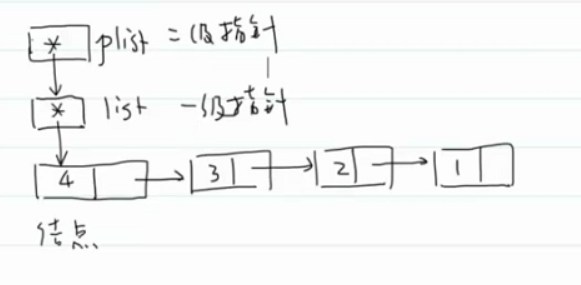 * plist 二级指针
* list 一级指针
4 3 2 1
结点